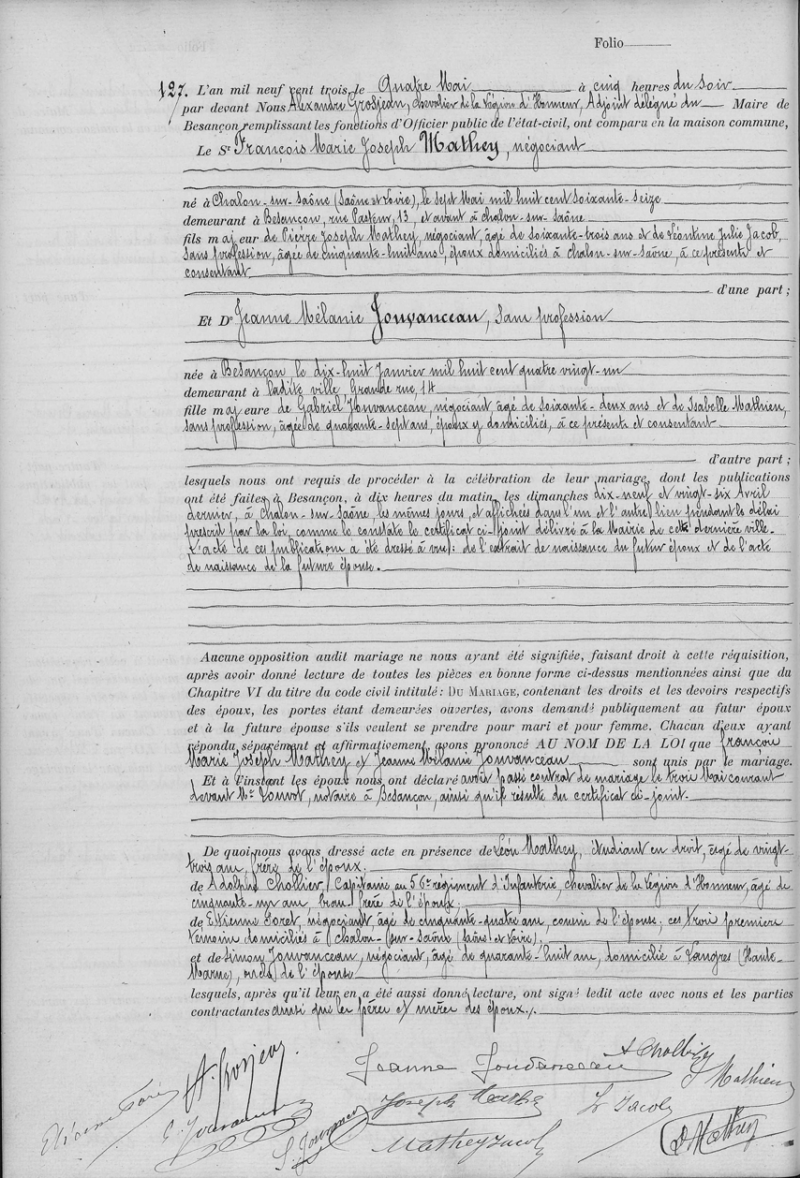 Folio
127. L'an mil neuf cent trois, le Quatre Mai à cinq heures du soir
par devant Nous Alexandre Grosjean, Chevalier de la Légion d'Honneur, Adjoint délégué du Maire de
Besançon remplissant les fonctions d'Officier public de l'état-civil, ont comparu en la maison commune,
Le Sr François Marie Joseph Mathey, négociant
né à Chalon-sur-Saône (Saône et Loire), le sept Mai mil huit cent soixante-seize
demeurant à Besançon, rue Pasteur, 13, et avant à Chalon-sur-Saône
fils majeur de Pierre Joseph Mathey, négociant, âgé de soixante-trois ans et de Léontine Julie Jacob,
sans profession, âgée de cinquante-huit ans, époux domiciliés à Chalon-sur-Saône, à ce présents et
consentant
d'une part ;
Et De Jeanne Mélanie Jouvanceau, sans profession
née à Besançon le dix-huit Janvier mil huit cent quatre vingt-un
demeurant à ladite ville Grande rue, 14
fille majeure de Gabriel Jouvanceau, négociant, âgé de soixante-deux ans et de Isabelle Mathieu,
sans profession, âgée de quarante-sept ans, époux y domiciliés, à ce présents et consentant
d'autre part ;
lesquels nous ont requis de procéder à la célébration de leur mariage, dont les publications
ont été faites à Besançon, à dix heures du matin, les dimanches dix-neuf et vingt-six Avril
dernier, à Chalon-sur-Saône, les mêmes jours, et affichées dans l'un et l'autre lieu pendant le délai
prescrit par la loi, comme le constate le certificat ci-joint délivré à la Mairie de cette dernière ville.
L'acte de ces publications a été dressé à vu : de l'extrait de naissance du futur époux et de l'acte
de naissance de la future épouse.
Aucune opposition audit mariage ne nous ayant été signifiée, faisant droit à cette réquisition,
après avoir donné lecture de toutes les pièces en bonne forme ci-dessus mentionnées ainsi que du
Chapitre VI du titre du code civil intitulé : DU MARIAGE, contenant les droits et les devoirs respectifs
des époux, les portes étant demeurées ouvertes, avons demandé publiquement au futur époux
et à la future épouse s'ils veulent se prendre pour mari et pour femme. Chacun d'eux ayant
répondu séparément et affirmativement, avons prononcé AU NOM DE LA LOI que François
Marie Joseph Mathey et Jeanne Mélanie Jouvanceau sont unis par le mariage.
Et à l'instant les époux nous ont déclaré avoir passé contrat de mariage le trois Mai courant
devant Me Louvot, notaire à Besançon, ainsi qu'il résulte du certificat ci-joint.
De quoi nous avons dressé acte en présence de Léon Mathey, étudiant en droit, âgé de vingt-
trois ans, frère de l'époux,
de Adolphe Chollier, Capitaine au 56e régiment d'Infanterie, chevalier de la Légion d'Honneur, âgé de
cinquante-un ans, beau frère de l'époux,
de Etienne Loret, négociant, âgé de cinquante-quatre ans, cousin de l'épouse, ces trois premiers
témoins domiciliés à Chalon-sur-Saône (Saône et Loire),
et de Simon Jouvanceau, négociant, âgé de quarante-huit ans, domicilié à Langres (Haute
Marne), oncle de l'épouse
lesquels, après qu'il leur en a été aussi donné lecture, ont signé ledit acte avec nous et les parties
contractantes ainsi que les pères et mères des époux.
A. Grosjean Jeanne Jouvanceau A Chollier
I Mathieu
Etienne G. Jouvanceau S. Jouvanceau Joseph Mathey L Jacob
Mathey Jacob L Mathey